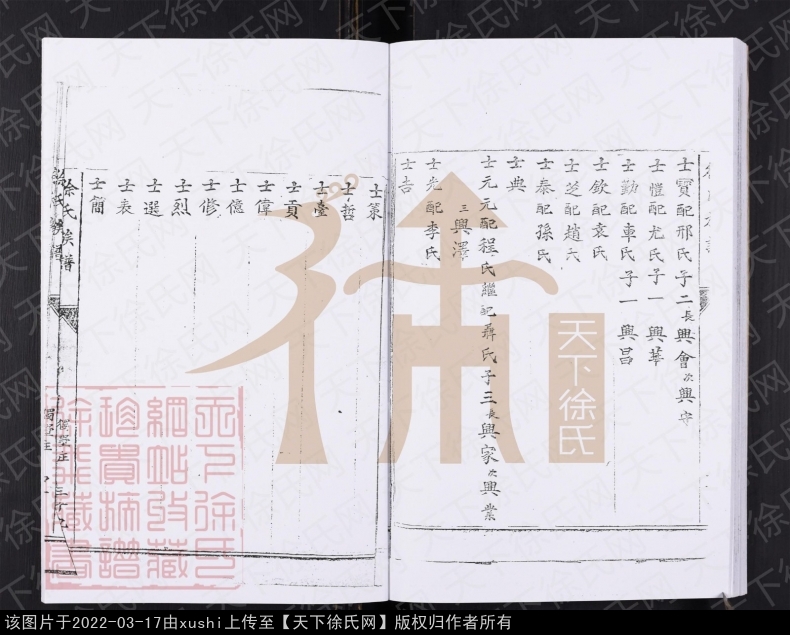 士寳配邢氏子二長興會次興守
士愷配尤氏子一興華
士勤配車氏子一興昌
士欽配袁氏
士芝配趙氏
士泰配孫氏
士典
士元元配程氏繼配聶氏子三長興家次興業
三興澤
士光配李氏
士吉
士策
士哲
士臺
士貢
士偉
士億
士修
士烈
士選
士表
士簡
徐氏族譜
三十九
天下徐氏
该图片于2022-03-17由xushi上传至【天下徐氏网】版权归作者所有